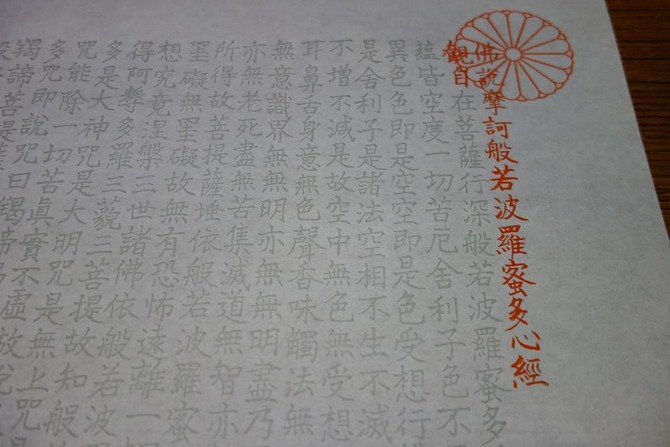 佛說摩訶般若波羅蜜多心經
觀自在菩薩行深般若波羅蜜多
蘊皆空度一切苦厄舍利子色不
異色色即是空空即是色受想行
是舍利子是諸法空相不生不滅
不增不減是故空中無色無受想
耳鼻舌身意無色聲香味觸法無
無意識界無無明亦無無明盡乃
亦無老死盡無苦集滅道無智亦
所得故菩提薩埵依般若波羅蜜
罣礙無罣礙故無有恐怖遠離一
想究竟涅槃三世諸佛依般若波
得阿耨多羅三藐三菩提故知般
多是大神咒是大明咒是無上咒
咒能除一切苦真實不虛故說
多咒即說咒曰羯諦
羯諦菩提